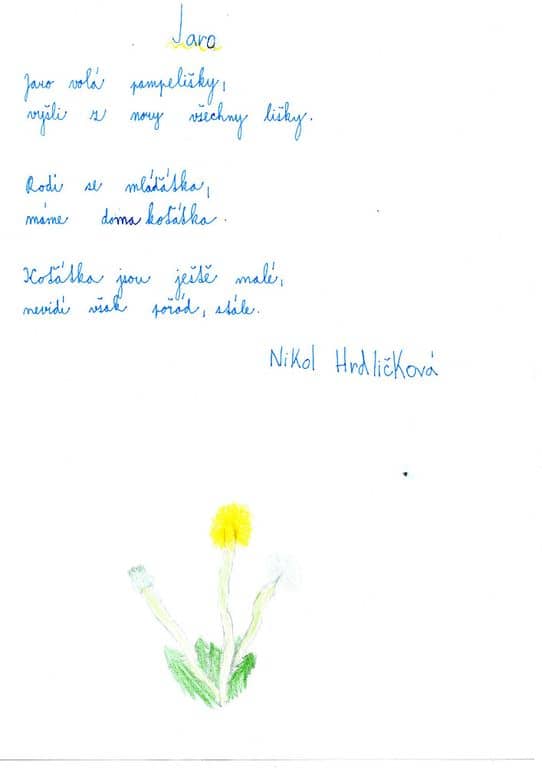 Jaro
Jaro volá pampelišky,
vyšli z nory všechny lišky.
Rodí se mláďátka,
máme doma koťátka.
Koťátka jsou ještě malé,
nevidí však pořád, stále.
Nikol Hrdličková